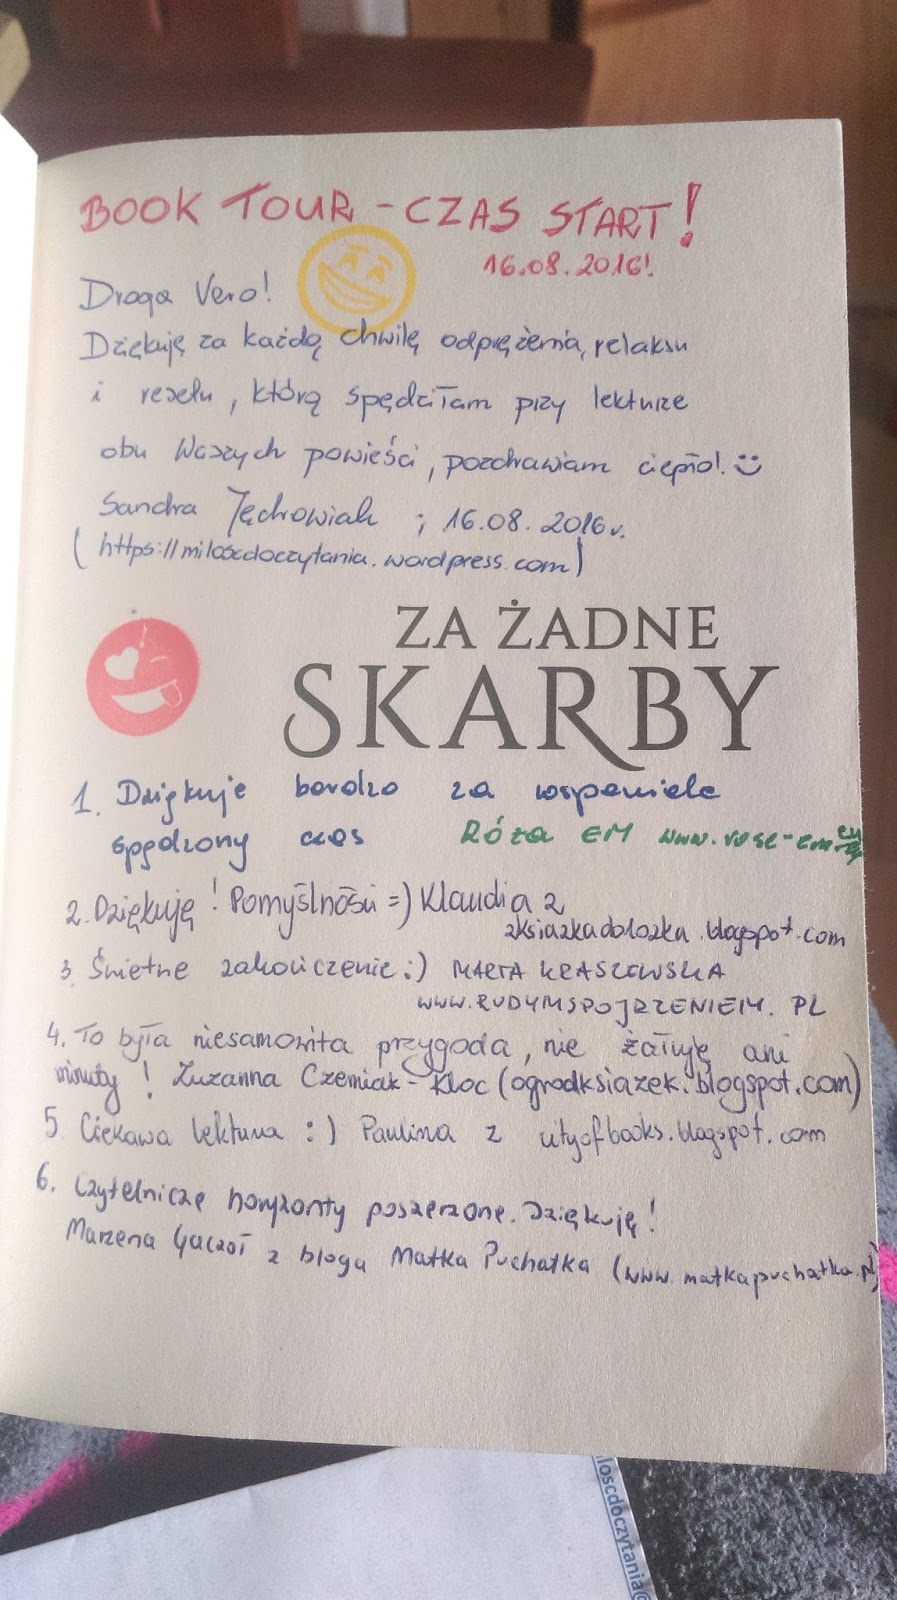 BOOK TOUR - CZAS START!
16.08.2016!
Droga Vero!
Dziękuję za każdą chwilę odprężenia, relaksu
i reselu, którą spędziłam przy lekturze
obu Waszych powieści, pozdrawiam ciepło! :)
Sandra Jęchowiak ; 16.08.2016r.
(https://miloscdoczytania.wordpress.com)
ZA ŻADNE
SKARBY
1. Dziękuje bardzo za wspaniale
spędzony czas Róża EM www.rose-em
2. Dziękuję! Pomyślności =) Klaudia z
zksiazkadolozka.blogspot.com
3. Świetne zakończenie :) MARTA KRASZEWSKA
WWW.RUDYMSPOJRZENIEM.PL
4. To była niesamowita przygoda, nie żałuję ani
minuty! Zuzanna Czerniak-Kloc (ogrodksiazek.blogspot.com)
5 Ciekawa lektura :) Paulina z cityofbooks.blogspot.com
6. Czytelnicze horyzonty poszerzone. Dziękuję!
Marzena z bloga Matka Puchatka (www.matkapuchatka.pl)
loscdoczytania@